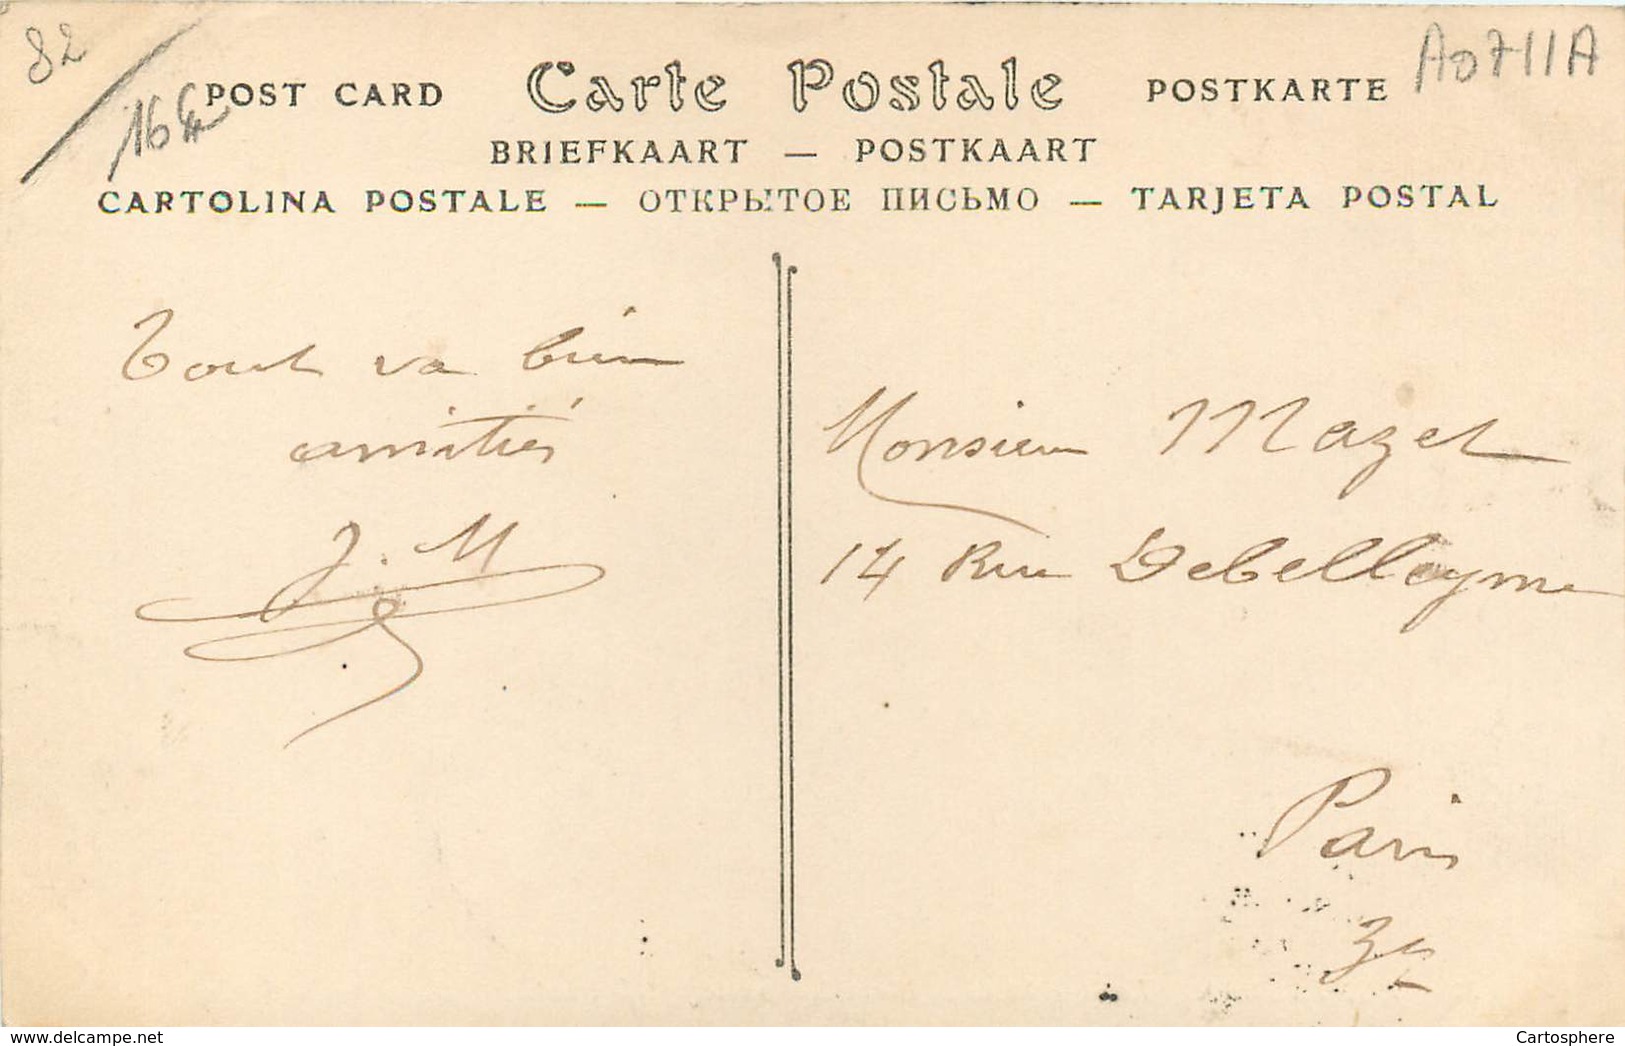 82
16€
A0711A
POST CARD Carte Postale POSTKARTE
BRIEFKAART — POSTKAART
CARTOLINA POSTALE — ОТКРЫТОЕ ПИСЬМО — TARJETA POSTAL
Tout va bien
amitiés
J. M
Monsieur Mazet
14 Rue Debelleyme
Paris
3e
delcampe.net
Cartosphere